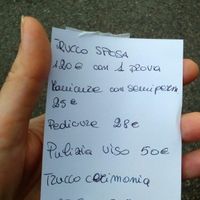 TRUCCO SPOSA
120€ con 1 prova
Manicure con semiperm
25€
Pedicure 28€
Pulizia viso 50€
Trucco cerimonia